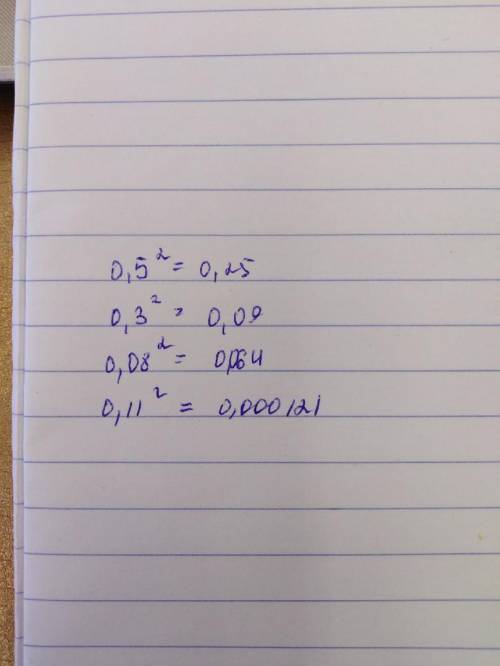 0,5² = 0,25
0,3² = 0,09
0,08² = 0,064
0,11² = 0,000121